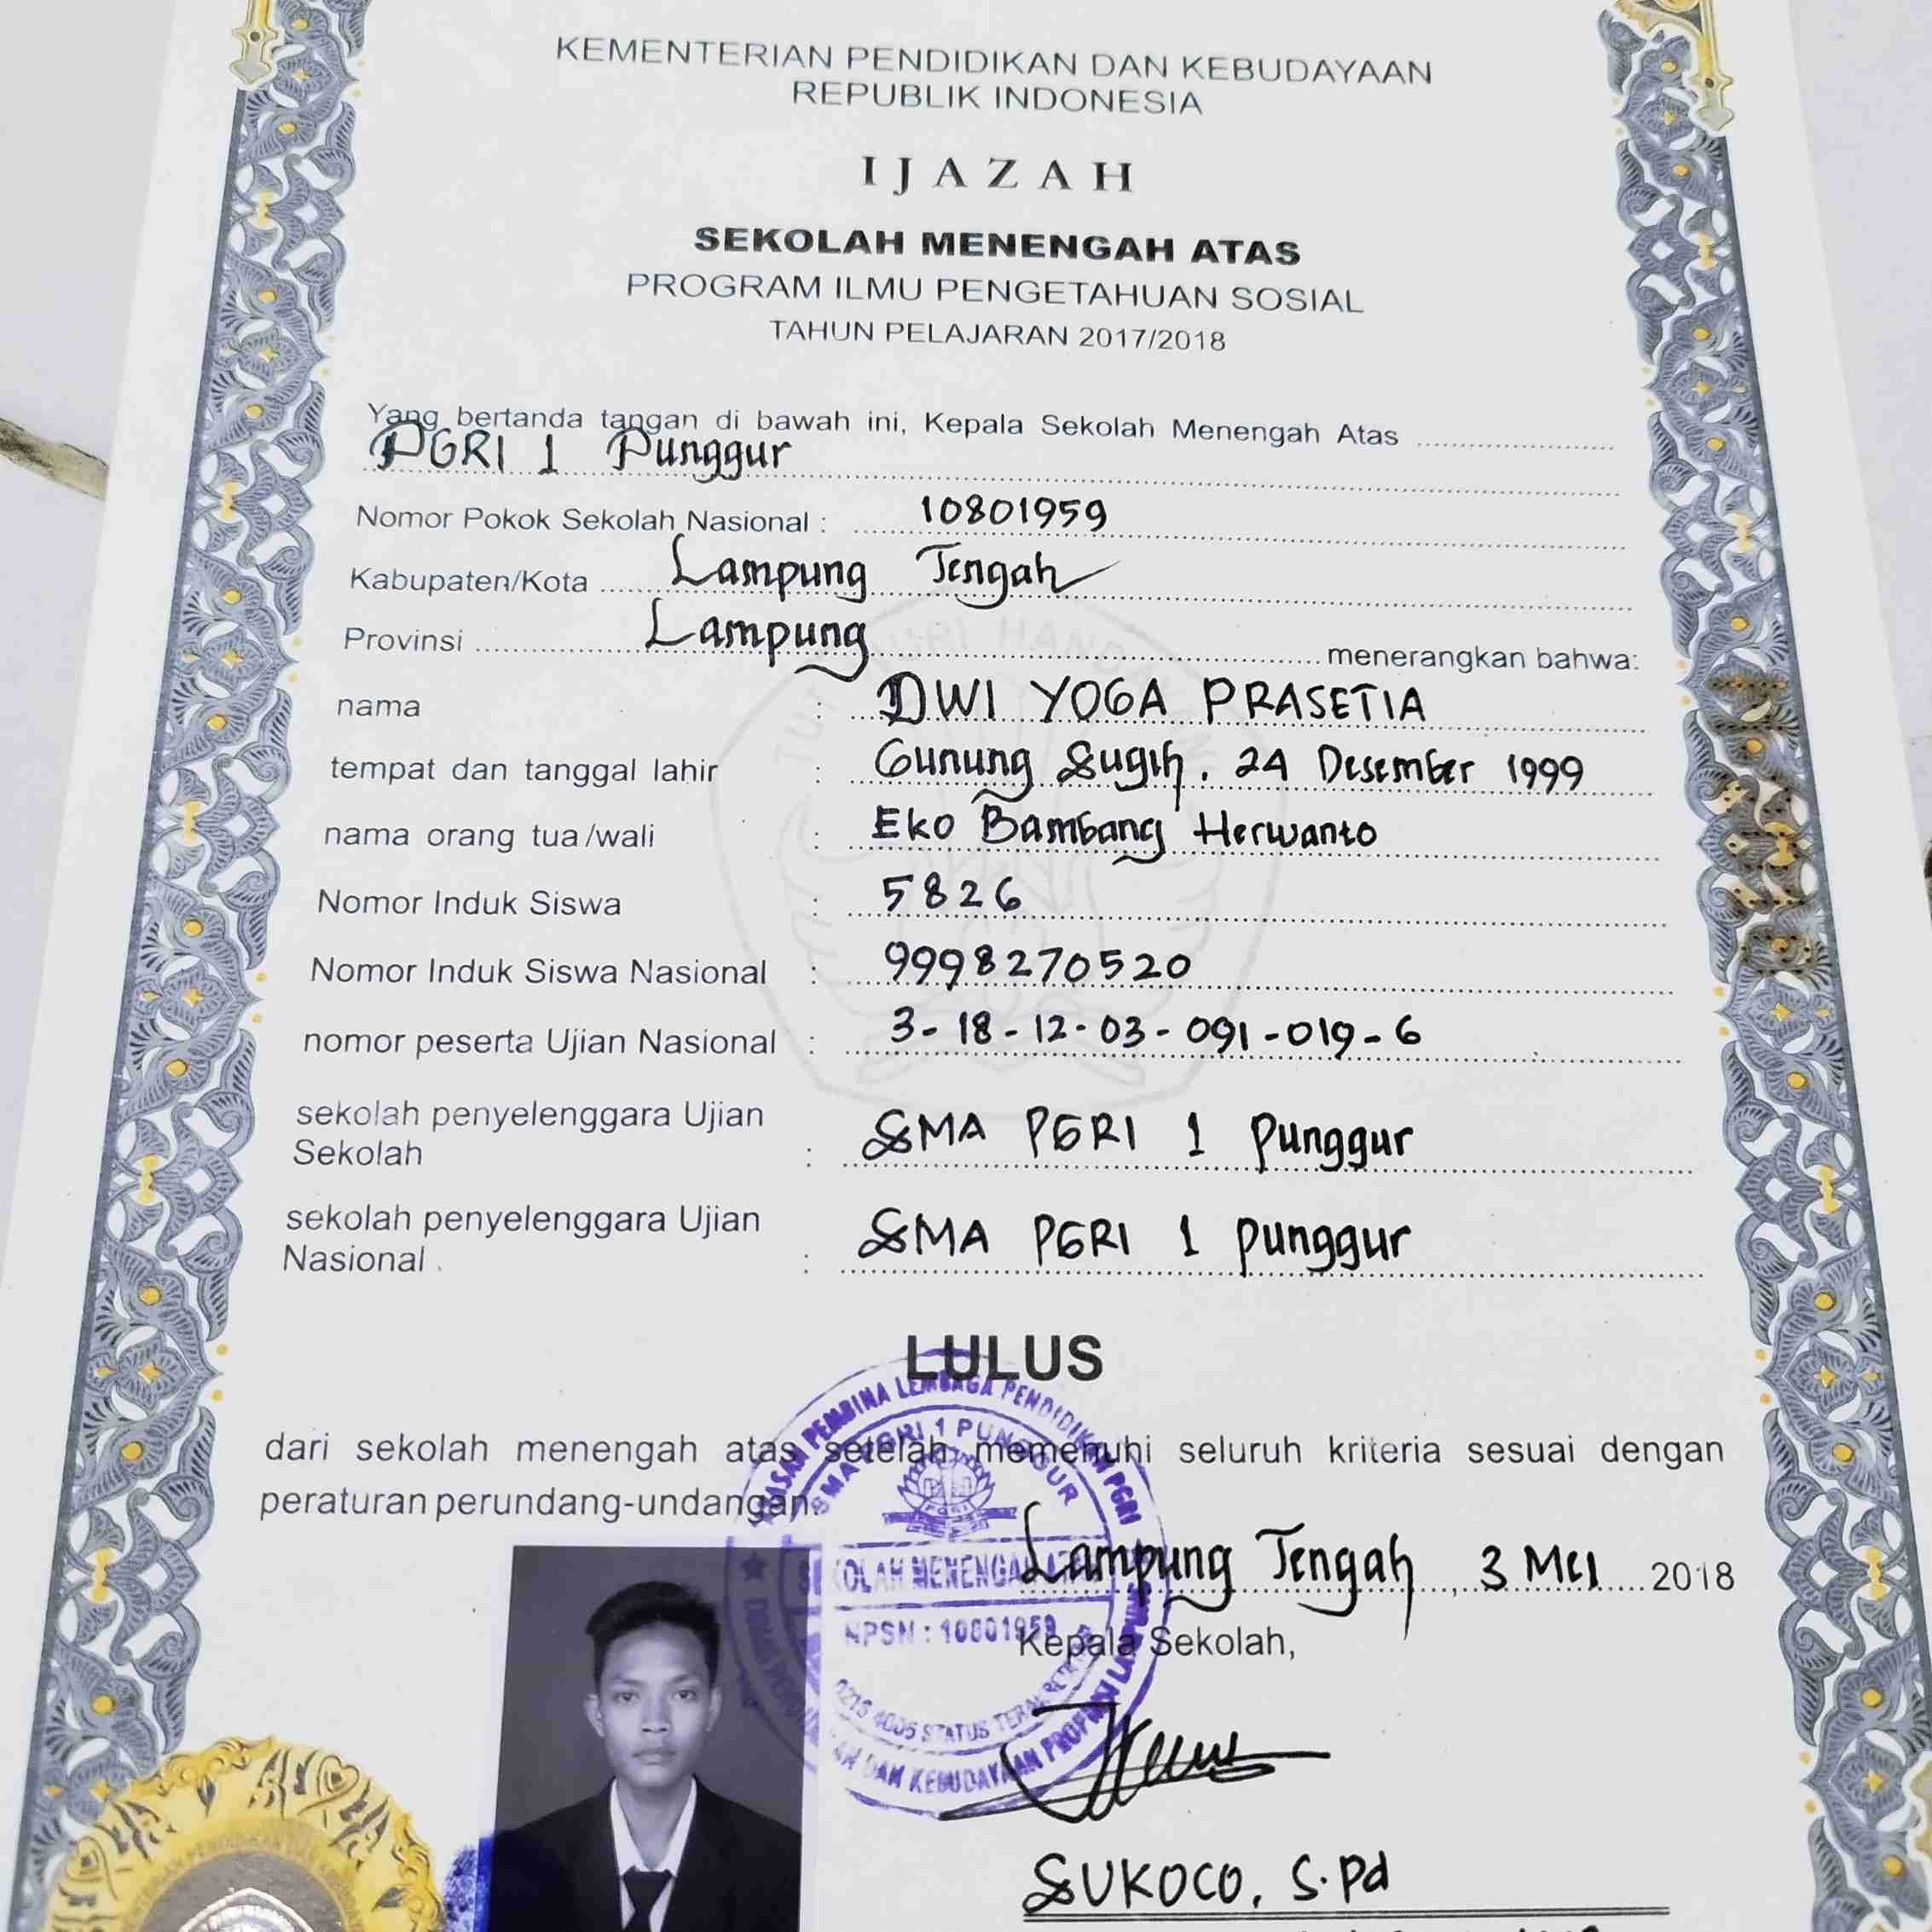 KEMENTERIAN PENDIDIKAN DAN KEBUDAYAAN
REPUBLIK INDONESIA
IJAZAH
SEKOLAH MENENGAH ATAS
PROGRAM ILMU PENGETAHUAN SOSIAL
TAHUN PELAJARAN 2017/2018
Yang bertanda tangan di bawah ini, Kepala Sekolah Menengah Atas
PGRI 1 Punggur
Nomor Pokok Sekolah Nasional : 10801959
Kabupaten/Kota Lampung Tengah
Provinsi Lampung menerangkan bahwa:
nama : DWI YOGA PRASETIA
tempat dan tanggal lahir : Gunung Sugih, 24 Desember 1999
nama orang tua/wali : Eko Bambang Herwanto
Nomor Induk Siswa : 5826
Nomor Induk Siswa Nasional : 9998270520
nomor peserta Ujian Nasional : 3-18-12-03-091-019-6
sekolah penyelenggara Ujian
Sekolah : SMA PGRI 1 Punggur
sekolah penyelenggara Ujian
Nasional : SMA PGRI 1 Punggur
LULUS
dari sekolah menengah atas setelah memenuhi seluruh kriteria sesuai dengan
peraturan perundang-undangan.
Lampung Tengah, 3 Mei 2018
Kepala Sekolah,
SUKOCO, S.Pd
PEMBINA LEMBAGA PENDIDIKAN PGRI
SMA PGRI 1 PUNGGUR
PGRI
NPSN : 10801959